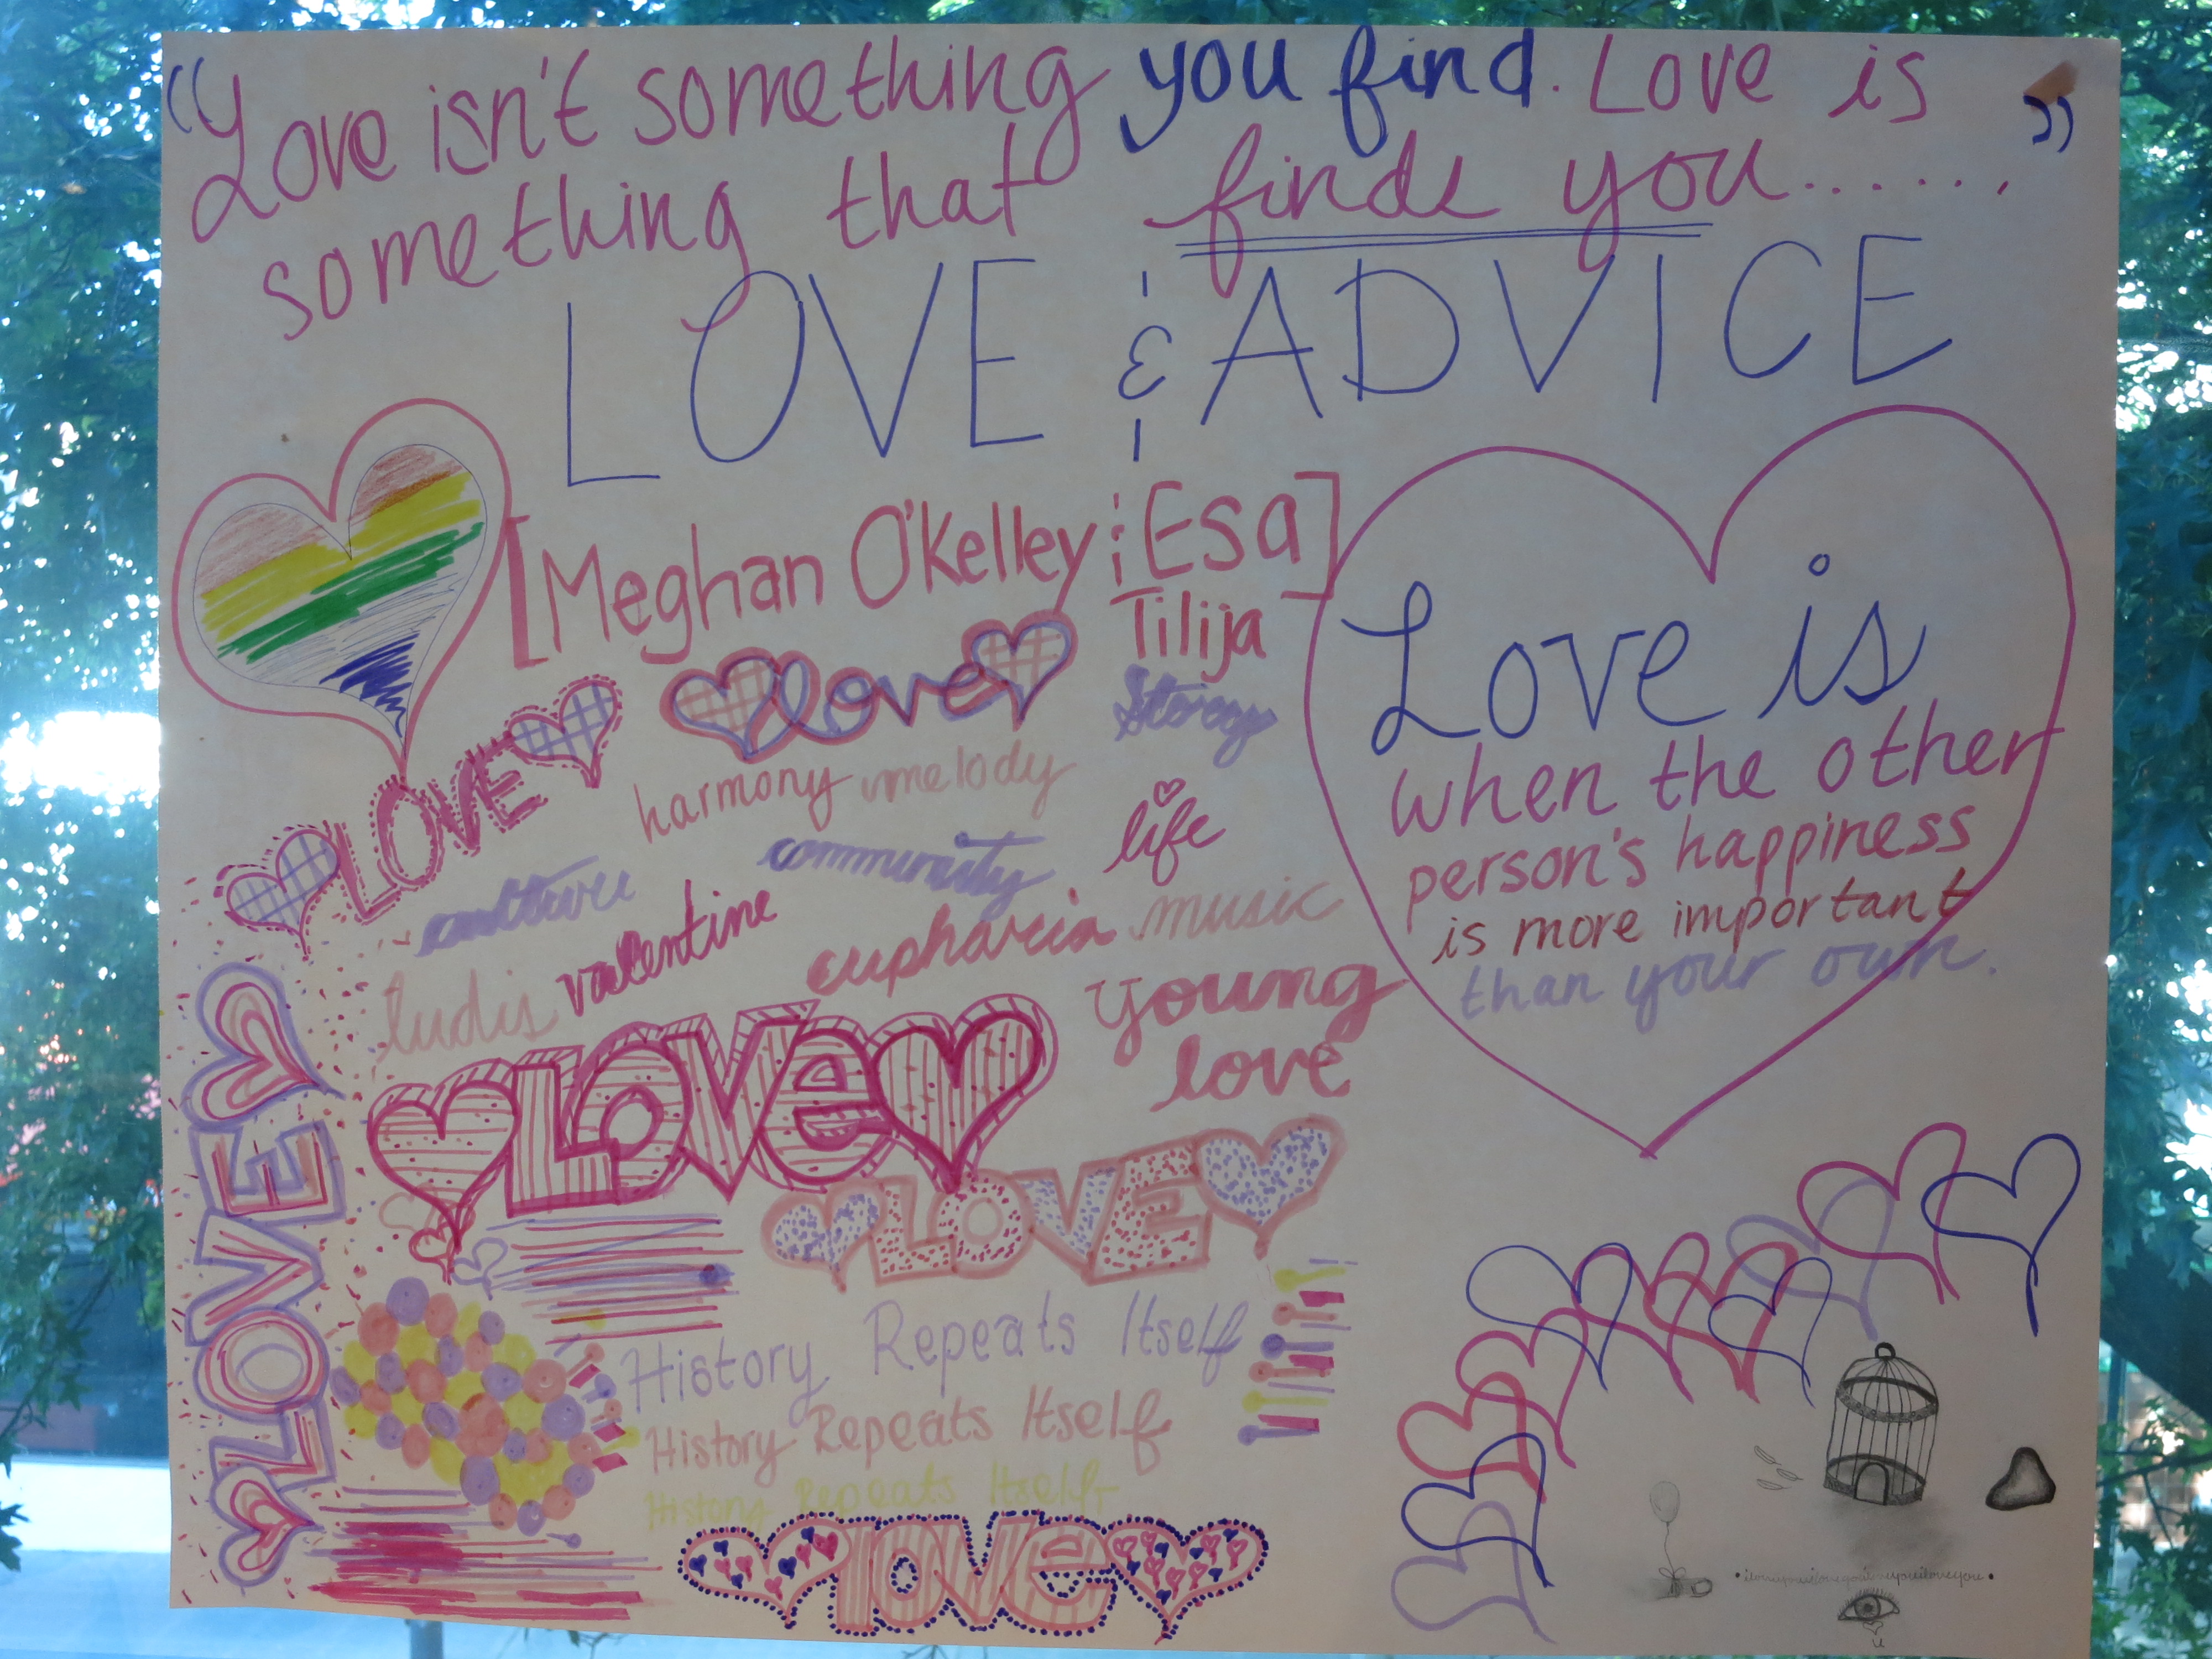 “Love isn't something you find. Love is
something that finds you.......”
LOVE & ADVICE
[Meghan O'Kelley & Esa]
Tilija
Love is
when the other
person's happiness
is more important
than your own.
love
LOVE
Storey
harmony melody
life
culture
community
valentine
eupharia music
ludis
young
love
LOVe
LOVE
LOVE
History Repeats Itself
History Repeats Itself
History Repeats Itself
love